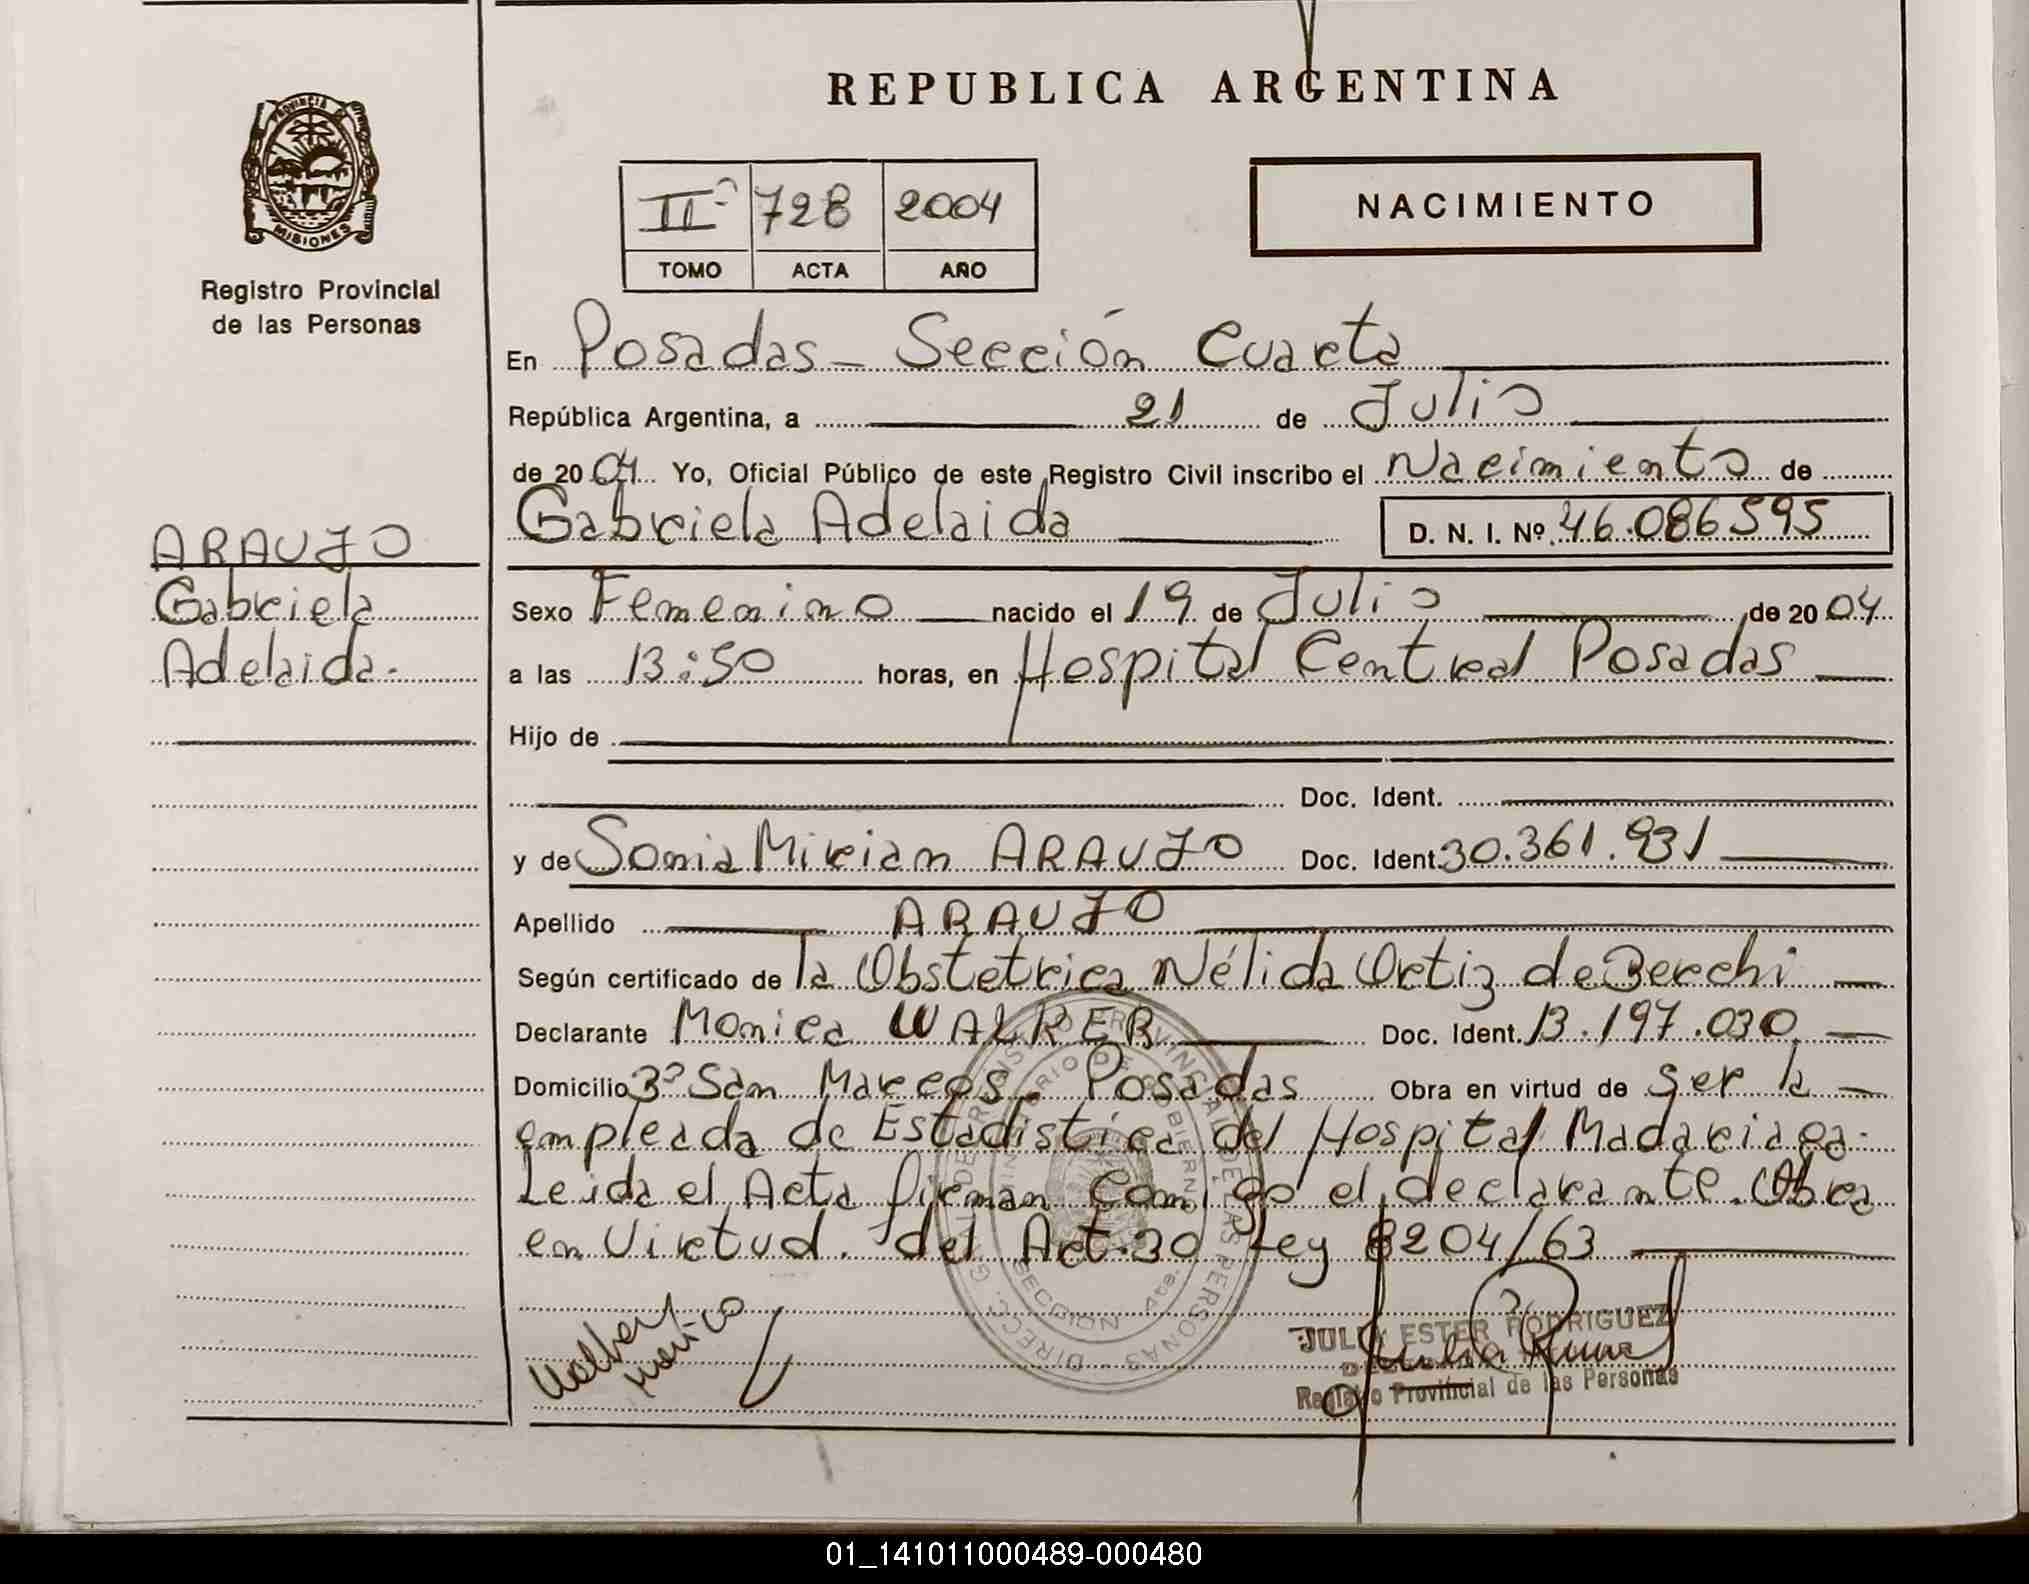 REPUBLICA ARGENTINA
PROVINCIA
MISIONES
Registro Provincial
de las Personas
II° 728 2004
TOMO ACTA AÑO
NACIMIENTO
En Posadas - Sección Cuarta
República Argentina, a 21 de Julio
de 2004 Yo, Oficial Público de este Registro Civil inscribo el Nacimiento de
Gabriela Adelaida D. N. I. Nº 46.086595
ARAUJO
Gabriela
Adelaida.
Sexo Femenino nacido el 19 de Julio de 2004
a las 13:50 horas, en Hospital Central Posadas
Hijo de
Doc. Ident.
y de Sonia Mirian ARAUJO Doc. Ident. 30.361.931
Apellido ARAUJO
Según certificado de la Obstetrica Nélida Ortiz de Berchi
Declarante Monica WALKER Doc. Ident. 13.197.030
Domicilio 3° San Marcos - Posadas Obra en virtud de ser la
empleada de Estadistica del Hospital Madariaga.
Leida el Acta firman comigo el declarante. Obra
en Virtud. del Art. 30 Ley 8204/63
DIRECC. G. DE REGISTRO PROVINCIAL DE LAS PERSONAS
MINISTERIO DE GOBIERNO
SECCION 4ta.
Walker
Monica
ESTER RODRIGUEZ
Registro Provincial de las Personas
01_141011000489-000480